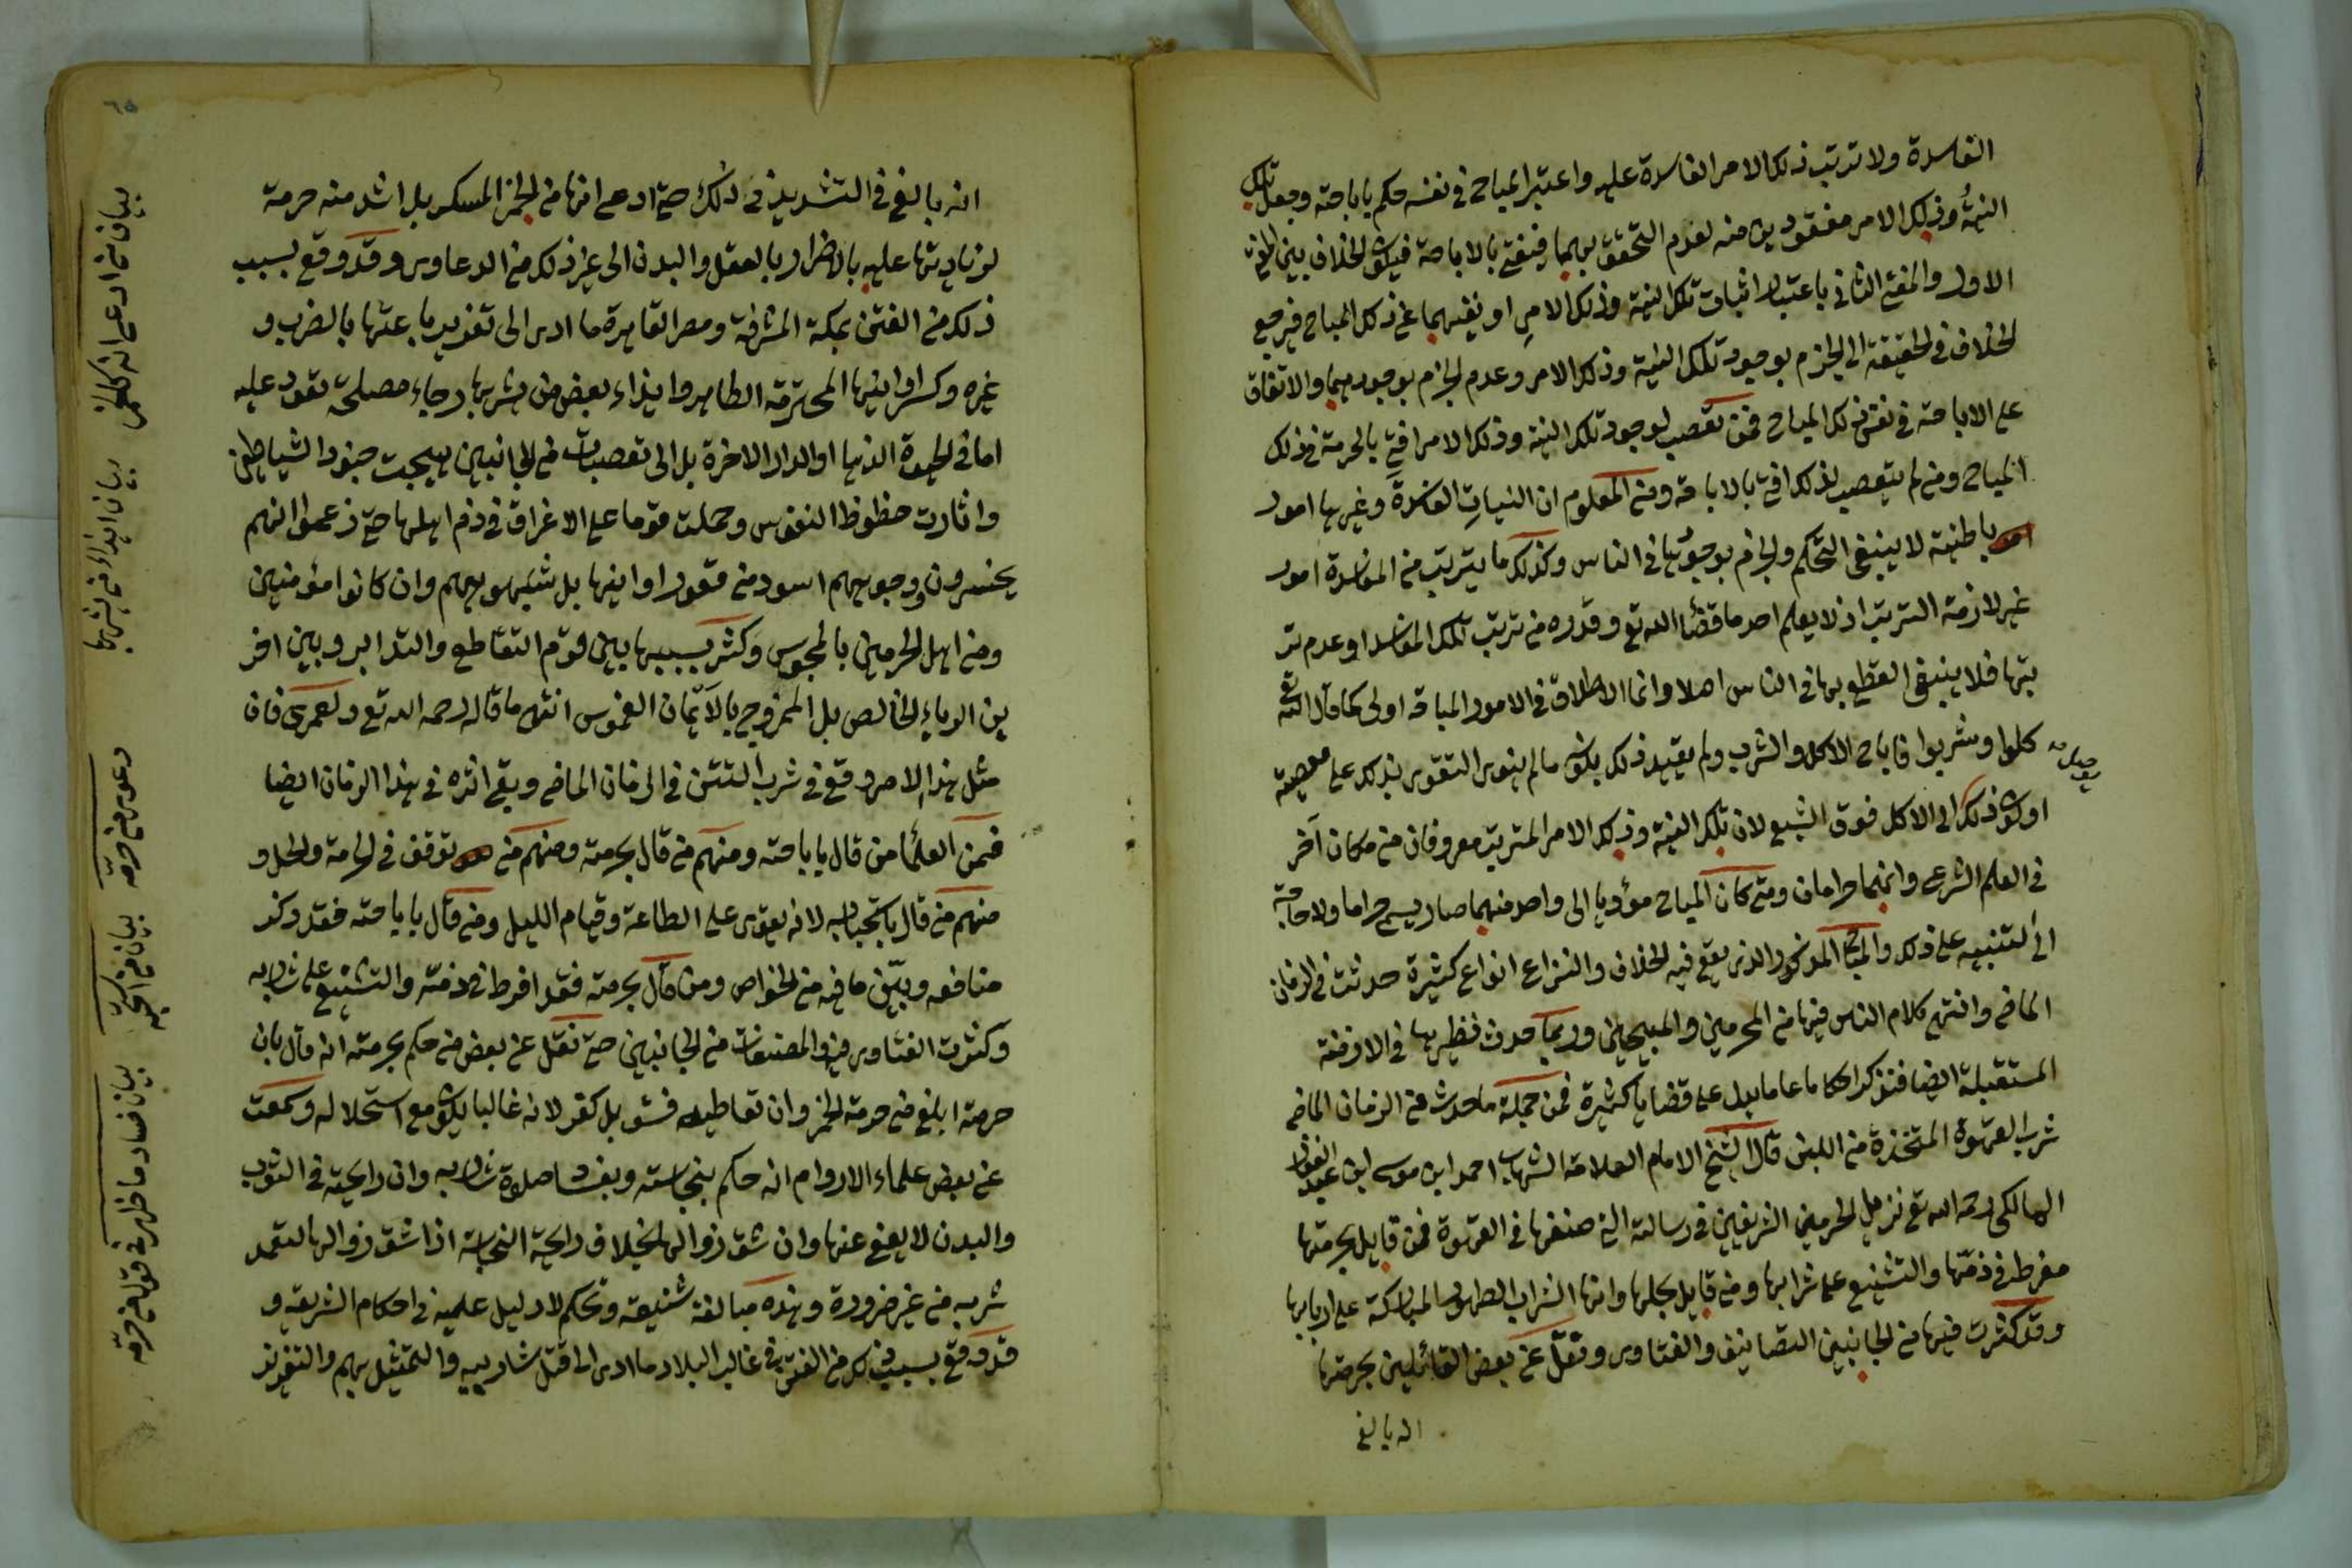 الفاسدة ولا ترتب ذلك الامر الفاسدة عليه واعتبر المباح في نفسه حكم باباحته وجعل تلك
النية وذلك الامر مفقودين منه لعدم التحقق بهما فيفتي بالاباحة فيكون الخلاف بين المفتي
الاول والمفتي الثاني باعتبار اثبات تلك النية وذلك الامر او نفيهما عن ذلك المباح فيرجع
الخلاف في الحقيقة الى الجزم بوجود تلك النية وذلك الامر وعدم الجزم بوجودهما والاتفاق
على الاباحة في نفس ذلك المباح فمن تعصب لوجود تلك النية وذلك الامر افتى بالحرمة في ذلك
المباح ومن لم يتعصب لذلك افتى بالاباحة ومن المعلوم ان النيات الفاسدة وغيرها امور
باطنية لا ينبغي التحكم والجزم بوجودها في الناس وكذلك ما يترتب من المفاسدة امور
غير لازمة الترتب اذ لا يعلم احد ما قضاء الله تع وقدره من ترتب تلك المفاسد او عدم تر
تبها فلا ينبغي القطع بها في الناس اصلا وانما الاطلاق في الامور المباحة اولى كما قال الله تع
كلوا وشربوا فاباح الاكل والشرب ولم يقيد ذلك بكونه ما لم ينوى التقوى بذلك على معصية
او يكون ذلك الى الاكل فوق الشبع لان تلك النية وذلك الامر المترتب معروفان من مكان آخر
في العلم الشرعي وانهما حرامان ومتى كان المباح مؤديا الى واحد منهما صار يسمى حراما ولا حاجة
الى التنبيه على ذلك والمباح المذكور الذى يقع فيه الخلاف والنزاع انواع كثيرة حدثت في الزمان
الماضي وانتهى كلام الناس فيها من المحرمين والمبيحين وربما حدث نظيرها في الازمنة
المستقبلة ايضا فنذكر احكاما عاما يدل على قضايا كثيرة فمن جملة ما حدث من الزمان الماضي
شرب القهوة المتخذة من اللبن قال الشيخ الامام العلامة الشهاب احمد ابن موسى ابن عبد الغفار
المالكي رحمه الله تع نزيل الحرمين الشريفين في رسالته التي صنفها في القهوة فمن قايل بحرمتها
مفرط في ذمها والتشنيع على شرابها ومن قايل بحلها وانها الشراب الطهور المباركة على اربابها
وقد كثرت فيها من الجانبين التصانيف والفتاوى ونقل عن بعض القائلين بحرمتها
انه بالغ
انه بالغ في التشديد في ذلك حتى ادعى انها من الخمر المسكر بل اشد منه حرمة
لزيادتها عليه بالاضرار بالعقل والبدن الى غير ذلك من الدعاوى وقد وقع بسبب
ذلك من الفتن بمكة المشرفة ومصر القاهرة ما ادى الى تعزير باعتها بالضرب و
غيره وكسر اوانيها المحترمة الطاهر وايذاء بعض من يشربها رجاء مصلحة تعود عليه
اما في الحيوة الدنيا او الدار الاخرة بل الى تعصبات من الجانبين هيجت جنود الشياطين
واثارت حظوظ النفوس وحملت قوما على الاغراق في ذم اهلها حتى زعموا انهم
يحشرون ووجوههم اسود من قعور اوانيها بل شبهوهم وان كانوا مؤمنين
ومن اهل الحرمين بالمجوس وكثر بسببها بين قوم التقاطع والتدابر وبين اخر
ين الرياء الخالص بل الممزوج بالأيمان الغموس انتهى ما قاله رحمه الله تع ولعمرى فان
مثل هذا الامر وقع في شرب التتن في الزمان الماضي وبقي اثره في هذا الزمان ايضا
فمن العلماء من قال باباحته ومنهم من قال بحرمته ومنهم من توقف في الحرمة والحل و
منهم من قال باستحبابه لانه يقوى على الطاعة وقيام الليل ومن قال باباحته فقد ذكر
منافعه وبيّن ما فيه من الخواص ومن قال بحرمته فقد افرط في ذمّه والتشنيع على شاربه
وكثرت الفتاوى فيه والمصنفات من الجانبين حتى نقل عن بعض من حكم بحرمته انه قال بان
حرمته ابلغ من حرمة الخمر وان تعاطيه فسق بل كفر لانه غالبا يكون مع استحلاله وسمعت
عن بعض علماء الاروام انه حكم بنجاسته وبفساد صلاة شاربه وان رايحته في الثوب
والبدن لا يعفى عنها وان شق زوالها بخلاف رايحة النجاسة اذا شق زوالها لتعمد
شربه من غير ضرورة وهذه مبالغة شنيعة وتحكم لا دليل عليه في احكام الشريعة و
قد وقع بسبب ذلك من الفتن في غالب البلاد ما ادى الى قتل شاربيه والتمثيل بهم والتعزير
بيان من ادعى انه كالخمر
بيان ايذاء من يشربها
دعوى من حرمه
بيان من
بيان فساد ما ظهر في قول من حرمه